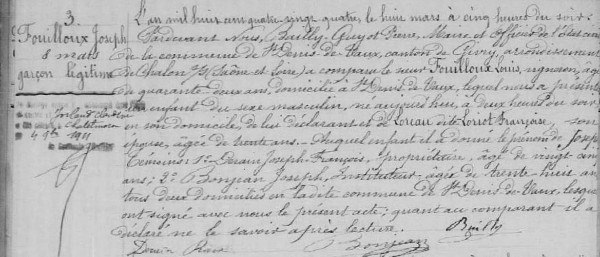 3.
Fouilloux Joseph
8 mars
garçon légitime
L'an mil huit cent quatre vingt quatre, le huit mars à cinq heures du soir
Pardevant Nous, Builly Guy et Pierre, Maire et Officier de l'état civil
de la commune de St Denis-de-Vaux, canton de Givry, arrondissement
de Chalon s/s (Saône et Loire) a comparu le sieur Fouilloux Louis, vigneron, âgé
de quarante deux ans, domicilié à St Denis-de-Vaux, lequel nous a présenté
un enfant du sexe masculin, né aujourd'hui, à deux heures du soir
en son domicile, de lui déclarant et de Loreau dite Loriot Françoise, son
épouse, âgée de trente ans. Auquel enfant il a donné le prénom de Joseph
Témoins: 1° Joseph-François, propriétaire, âgé de vingt cinq
ans; 2° Bonjean Joseph, Instituteur, âgé de trente huit ans
tous deux domiciliés en la dite commune de St Denis-de-Vaux, lesquels
ont signé avec nous le présent acte; quant au comparant il a
déclaré ne le savoir après lecture.
Builly
Bonjean